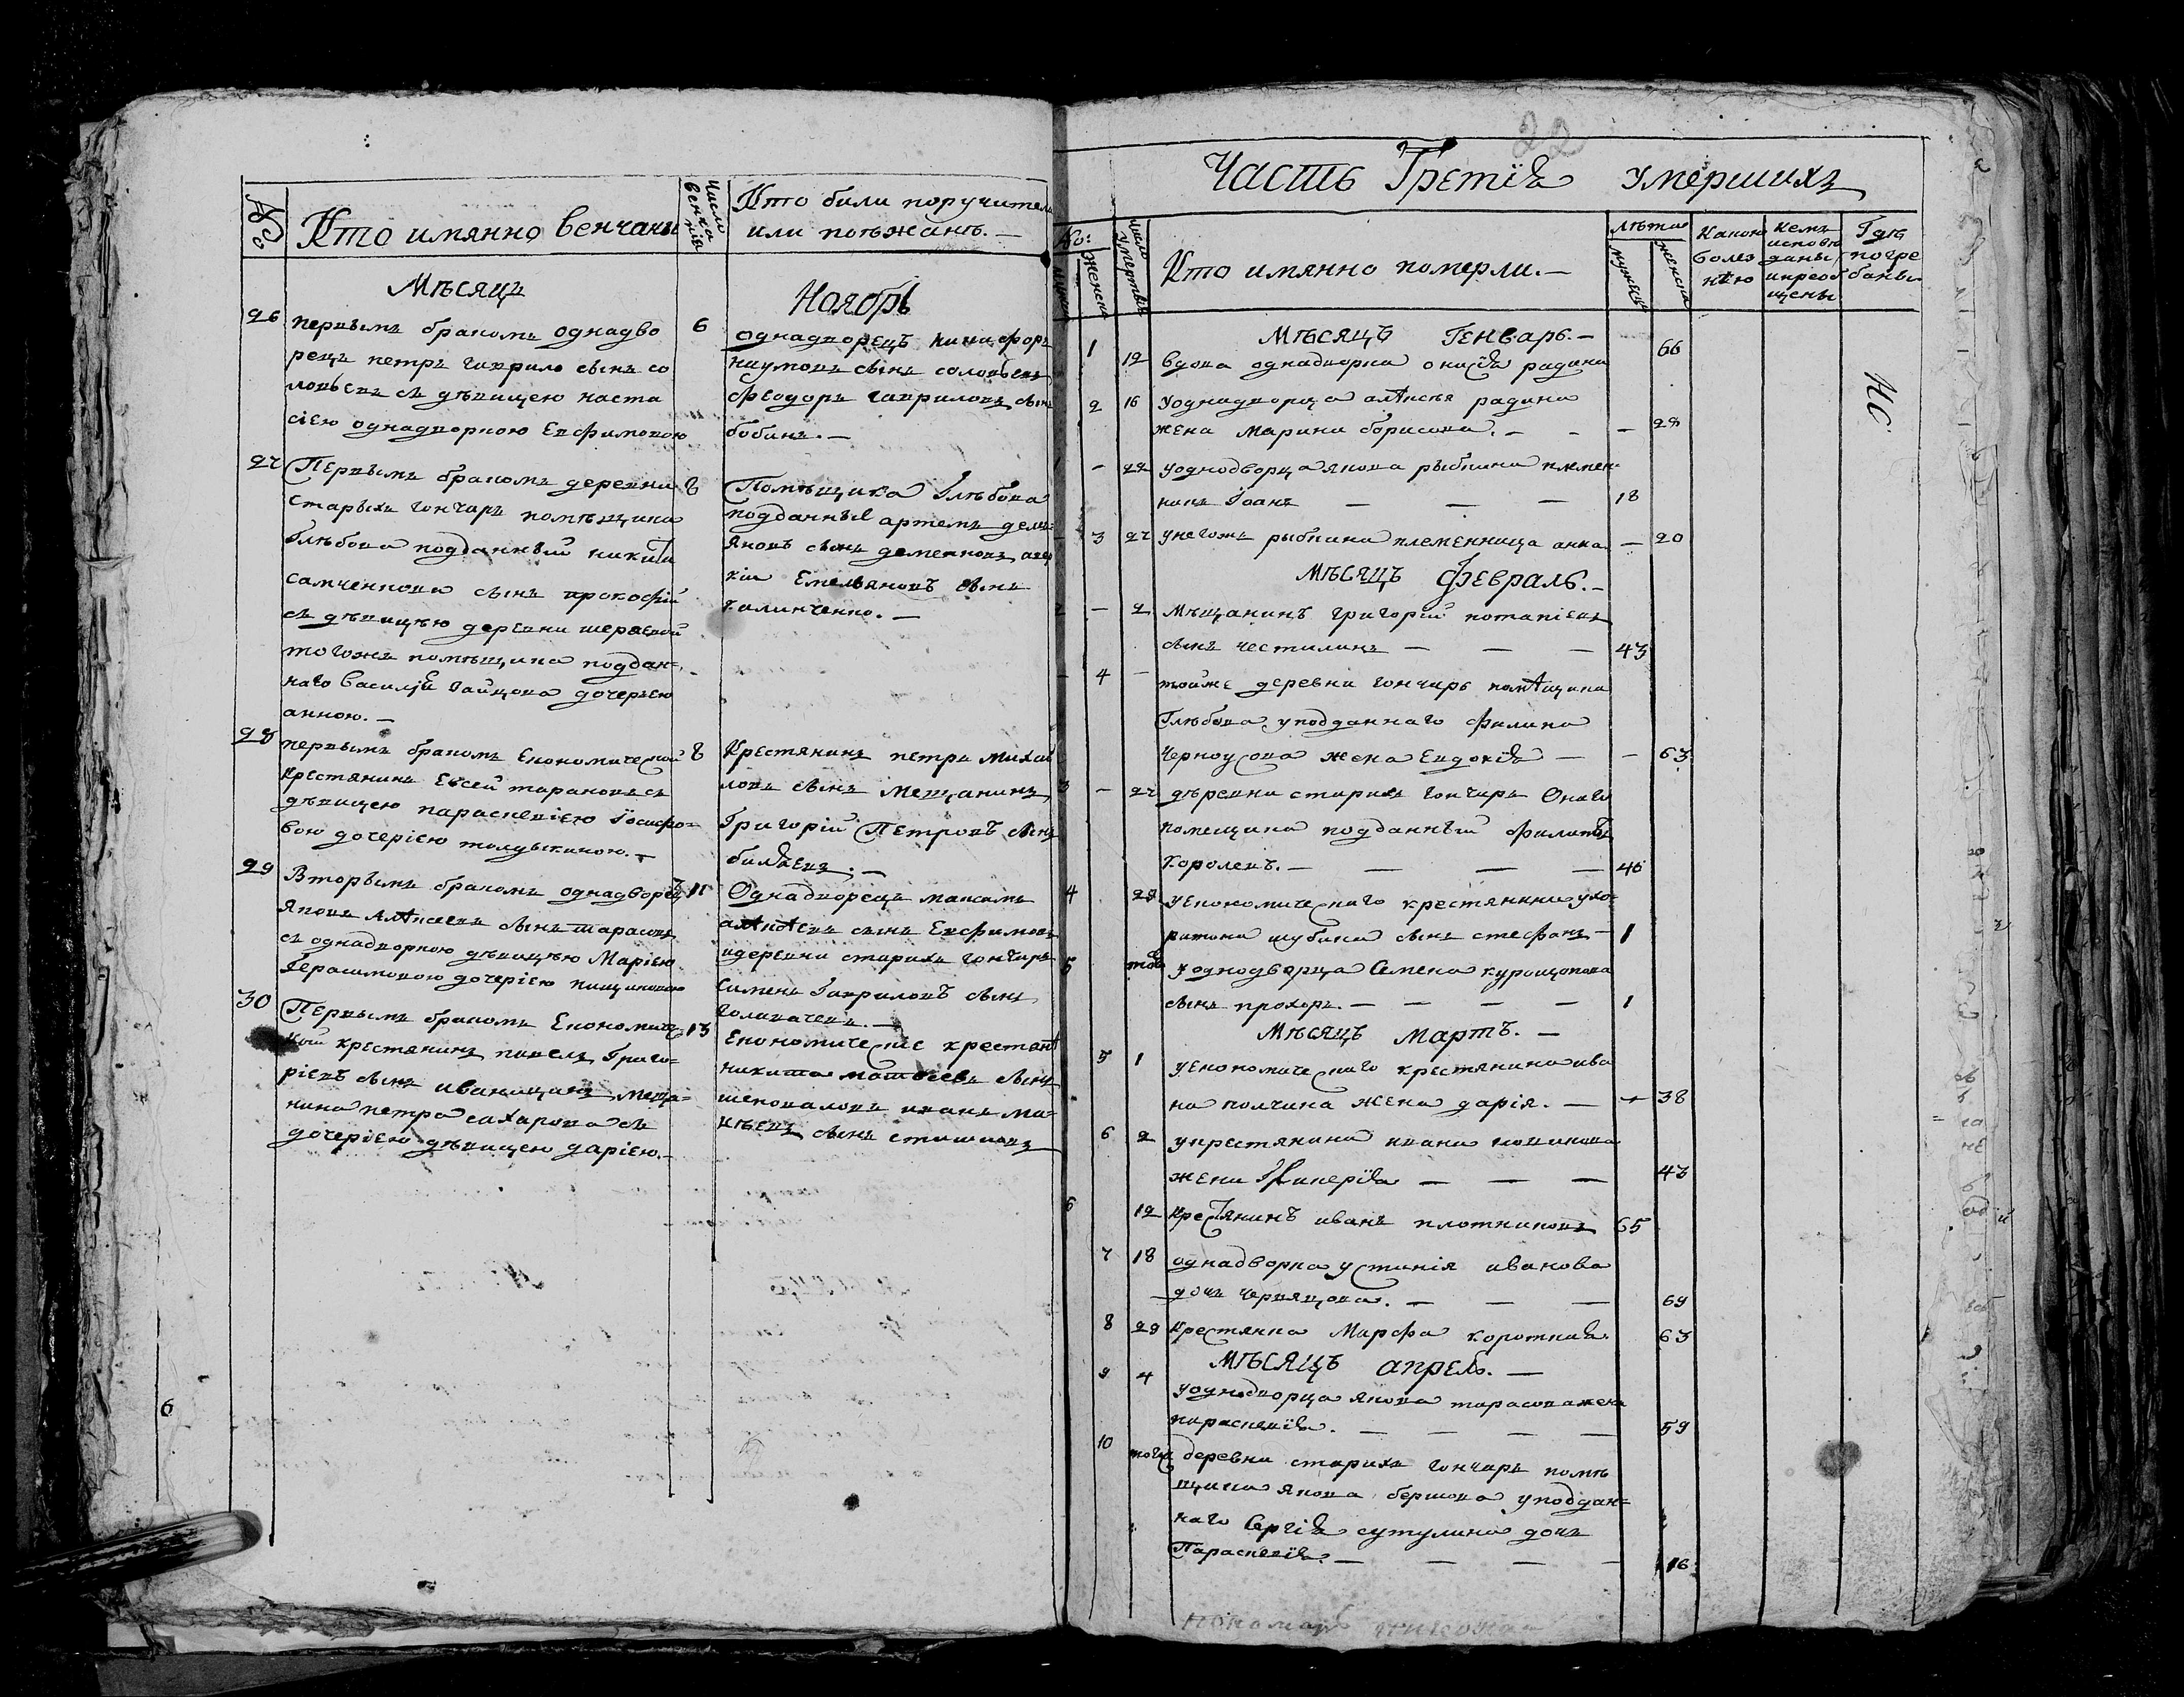 №
Кто имянно венчаны
Число венчанія
Кто были поручители
или поезжанѣ.
Мѣсяцъ
Ноябрь
26
первымъ бракомъ однадво
рецъ петръ гаврило сынъ со
ловьевъ съ дѣвицею наста
сіею однадворкою Евфимовою
6
однадворецъ никифоръ
наумовъ сынъ соловьевъ
феодоръ гавриловъ сынъ
бобинъ.
27
Первымъ бракомъ деревни
старыхъ гончаръ помѣщика
Глѣбова подданный никита
самченкова сынъ прокофій
съ дѣвицѣю деревни
тогожъ помѣщика поддан=
наго василія гайцова дочерью
анною.
8
Помѣщика Глѣбова
подданныя артемъ демь
яновъ сынъ деменковъ
кій Емельяновъ сынъ
калинченко.
28
первымъ бракомъ Економической
крестянинъ Евсей таракановъ съ
дѣвицею параскевіею Іосифо=
вою дочеріею толдыкиною.
8
Крестянинъ петръ михаи
ловъ сынъ мещанинъ
Григорій Петровъ сынъ
29
Вторымъ бракомъ однадворецъ
яковъ алѣксеевъ сынъ тарасовъ
съ однадворкою дѣвицѣю Маріею
Герасимовою дочеріею
11
Однадворецъ максимъ
алѣкѣевъ сынъ Евфимовъ
идеревни старихъ гончаръ
Сименъ Гавриловъ сынъ
30
Первымъ бракомъ Економиче=
кой крестянинъ павелъ Григо=
ріевъ сынъ иванищавъ меща=
нина петра сахарова съ
дочеріею дѣвицею даріею.
13
Економическіе крестянѣ
никита матвеевъ сынъ
шеповаловъ иванъ ма=
кѣевъ сынъ
6
22
Часть Третія умершихъ
№:
мужеск
женск
число умертвія
Кто имянно померли.
лѣта
мужеска
женска
Какою
болез
нѣю
Кемъ
исповѣ
даны
ипреоб
щены
Гдѣ
погре
баны
Мѣсяцъ Генварь.
1 12 вдова однадворка онисія радина 66
2 16 Уоднадворца алѣксея радина
жена Марина борисова. 28
1 22 уоднодворца якова рыбкина племен
никъ Іоанъ 18
3 27 унегожъ рыбкина племенница анна 20
Мѣсяцъ Февраль.
2 2 Мѣщанинъ григорій потапіевъ
сынъ честилинъ 43
4 тойже деревни гончаръ помѣщика
Глѣбова уподданнаго филипа
Черноусова жена Евдокія 63
3 27 дѣревни старихъ гончаръ Онаго
помещика подданный филипъ
Королевъ. 46
4 28 уЕкономическаго крестянина ухо
ритона шубина сынъ стефанъ 1
5 тово уоднодворца Семена курощопова
сынъ прохоръ. 1
Мѣсяцъ Мартъ.
5 1 уЕкономическаго крестянина ива
на полчина жена дарія. 38
6 2 укрестянина ивана новикова
жена Гликерія 43
6 12 Крестянинъ иванъ плотниковъ 65
7 18 однадворка устинія иванова
дочь чернящова. 69
8 29 Крестянка Марфа короткая 63
Мѣсяцъ апрель.
9 4 уоднодворца якова тарасова жена
параскевія. 59
10 тогожъ деревни старихъ гончаръ помѣ
щика якова бершова уподдан=
наго Сергія сутулина дочь
Параскевія. 16
НС
Пономарь